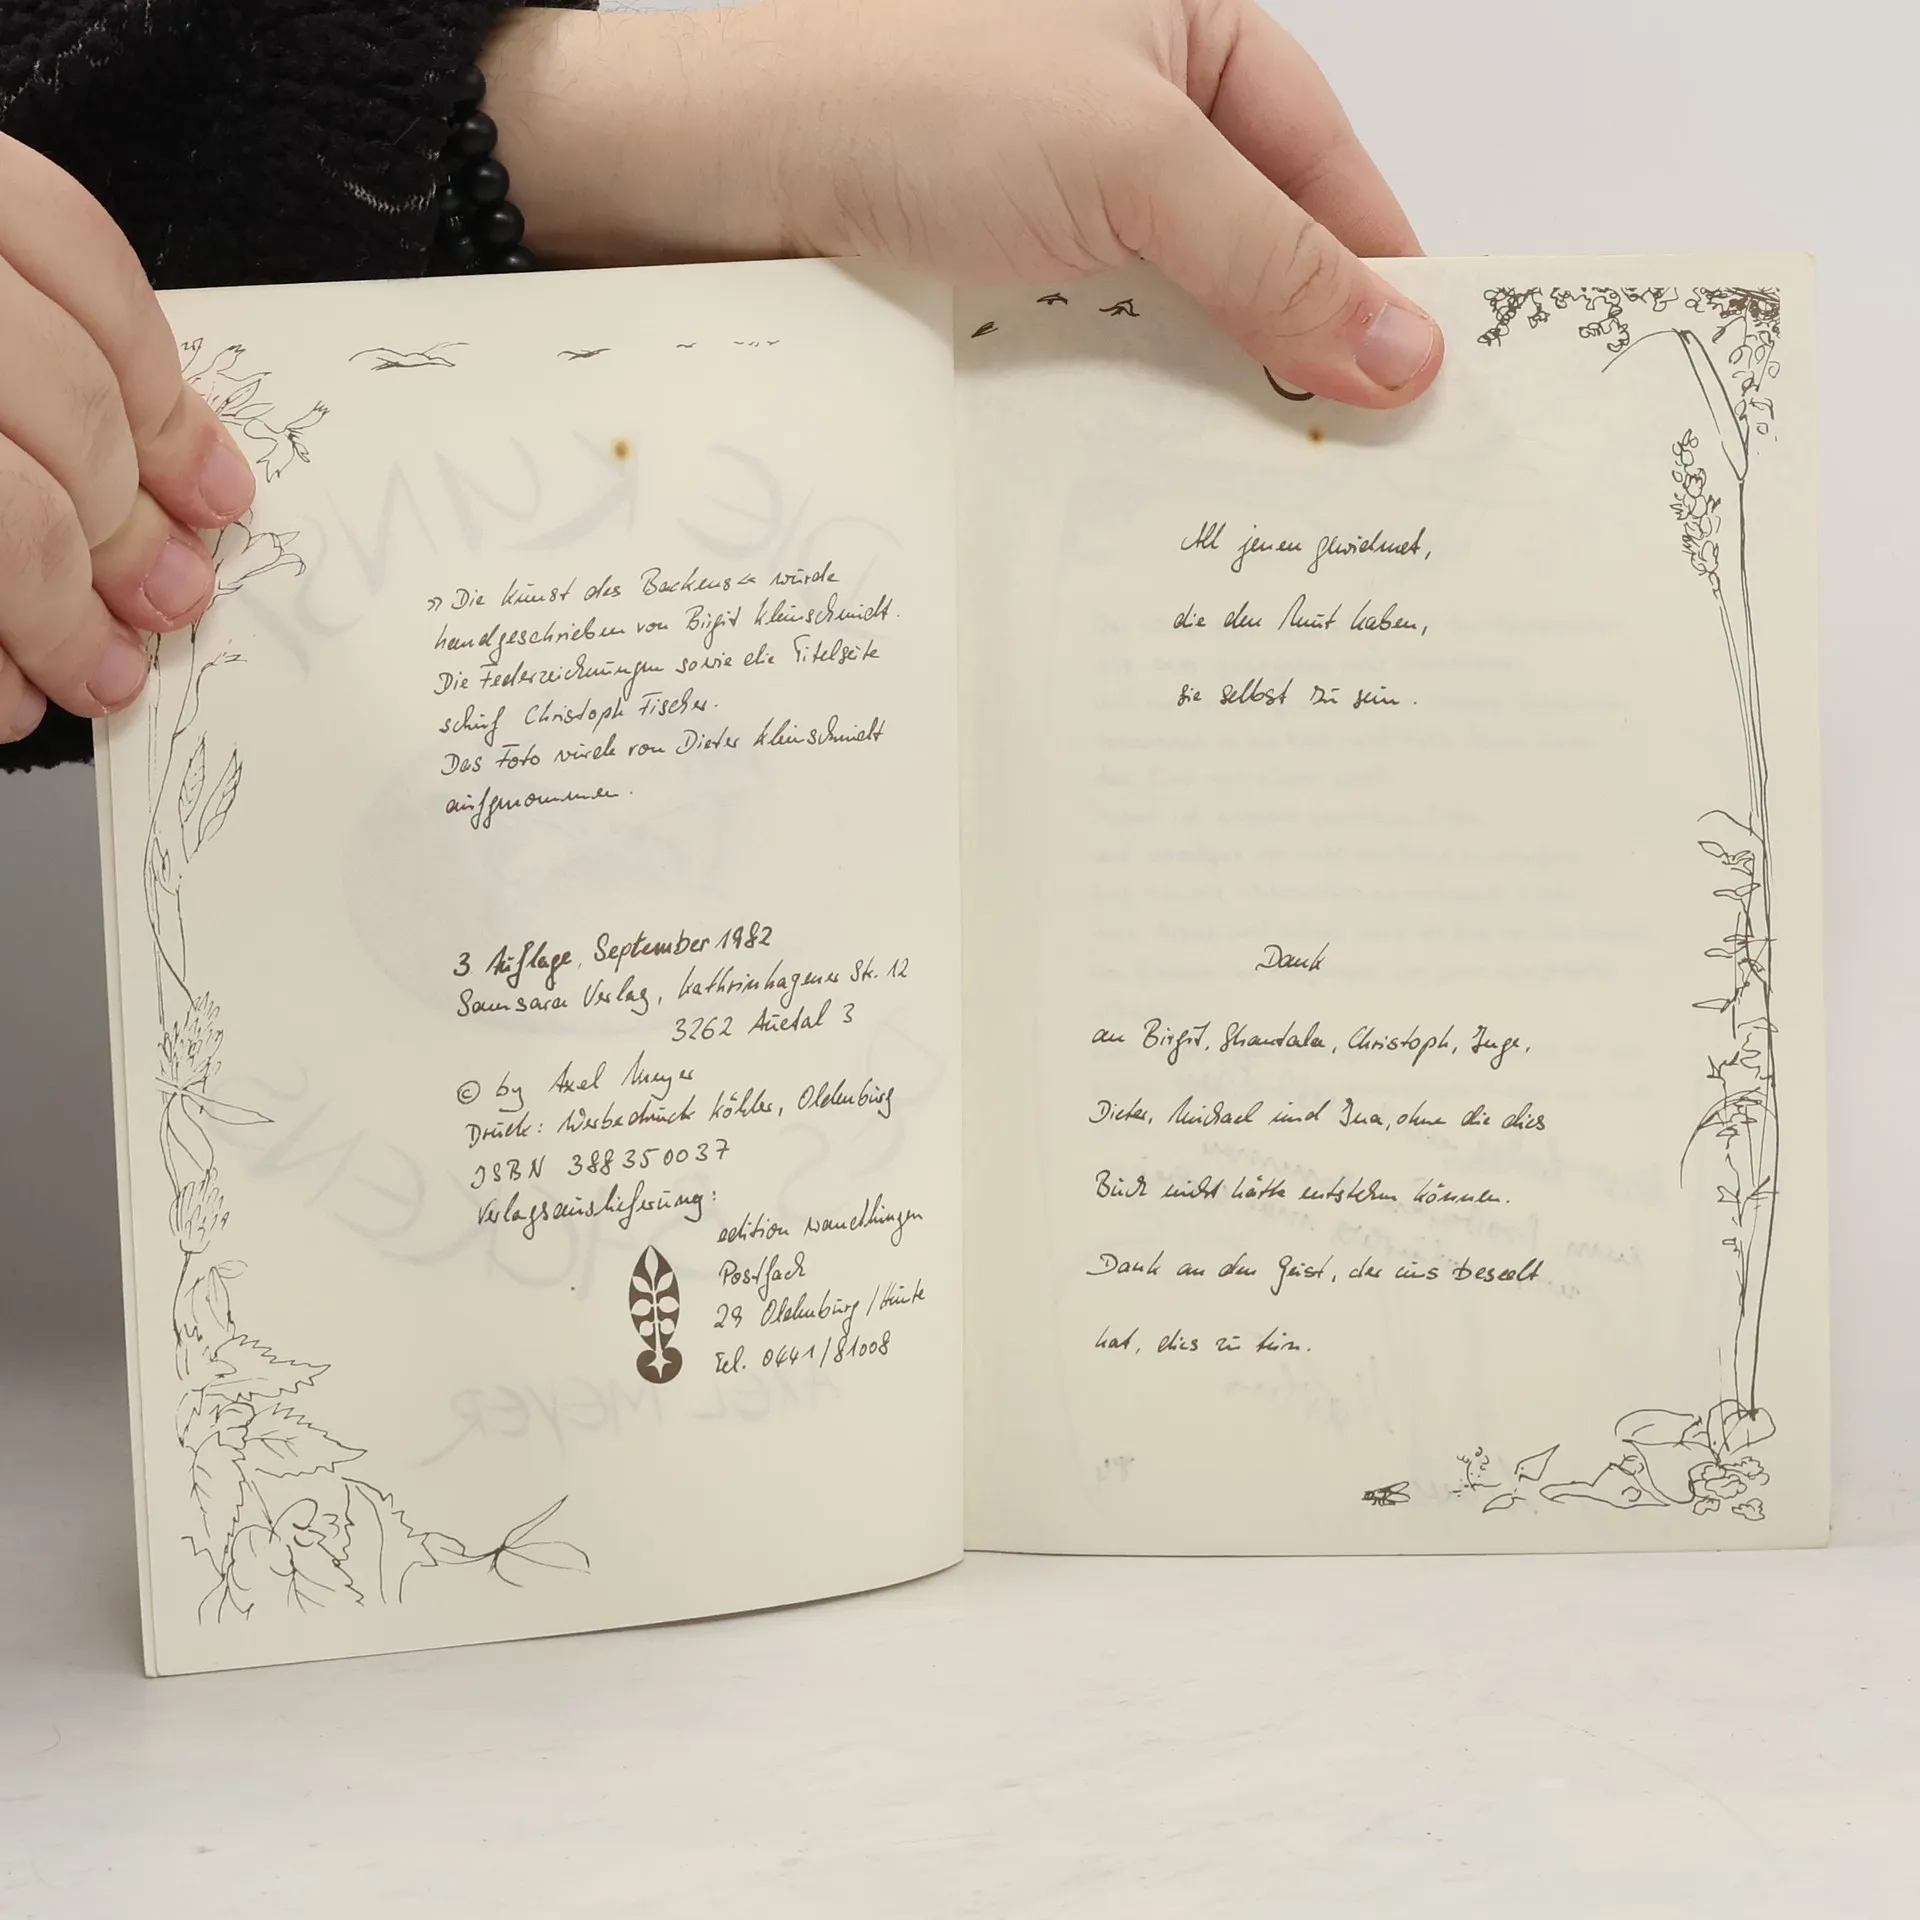 »Die Kunst des Backens« wurde
handgeschrieben von Birgit Kleinschmidt.
Die Federzeichnungen sowie die Titelseite
schuf Christoph Fischer.
Das Foto wurde von Dieter Kleinschmidt
aufgenommen.
3. Auflage, September 1982
Samsara Verlag, Kathrinhagener Str. 12
3262 Auetal 3
© by Axel Meyer
Druck: Werbedruck Köhler, Oldenburg
ISBN 388350037
Verlagsauslieferung:
edition wandlungen
Postfach
29 Oldenburg / Hunte
Tel. 0441/81008
All jenen gewidmet,
die den Mut haben,
sie selbst zu sein.
Dank
an Birgit, Shantala, Christoph, Inge,
Dieter, Michael und Ina, ohne die dies
Buch nicht hätte entstehen können.
Dank an den Geist, der uns beseelt
hat, dies zu tun.